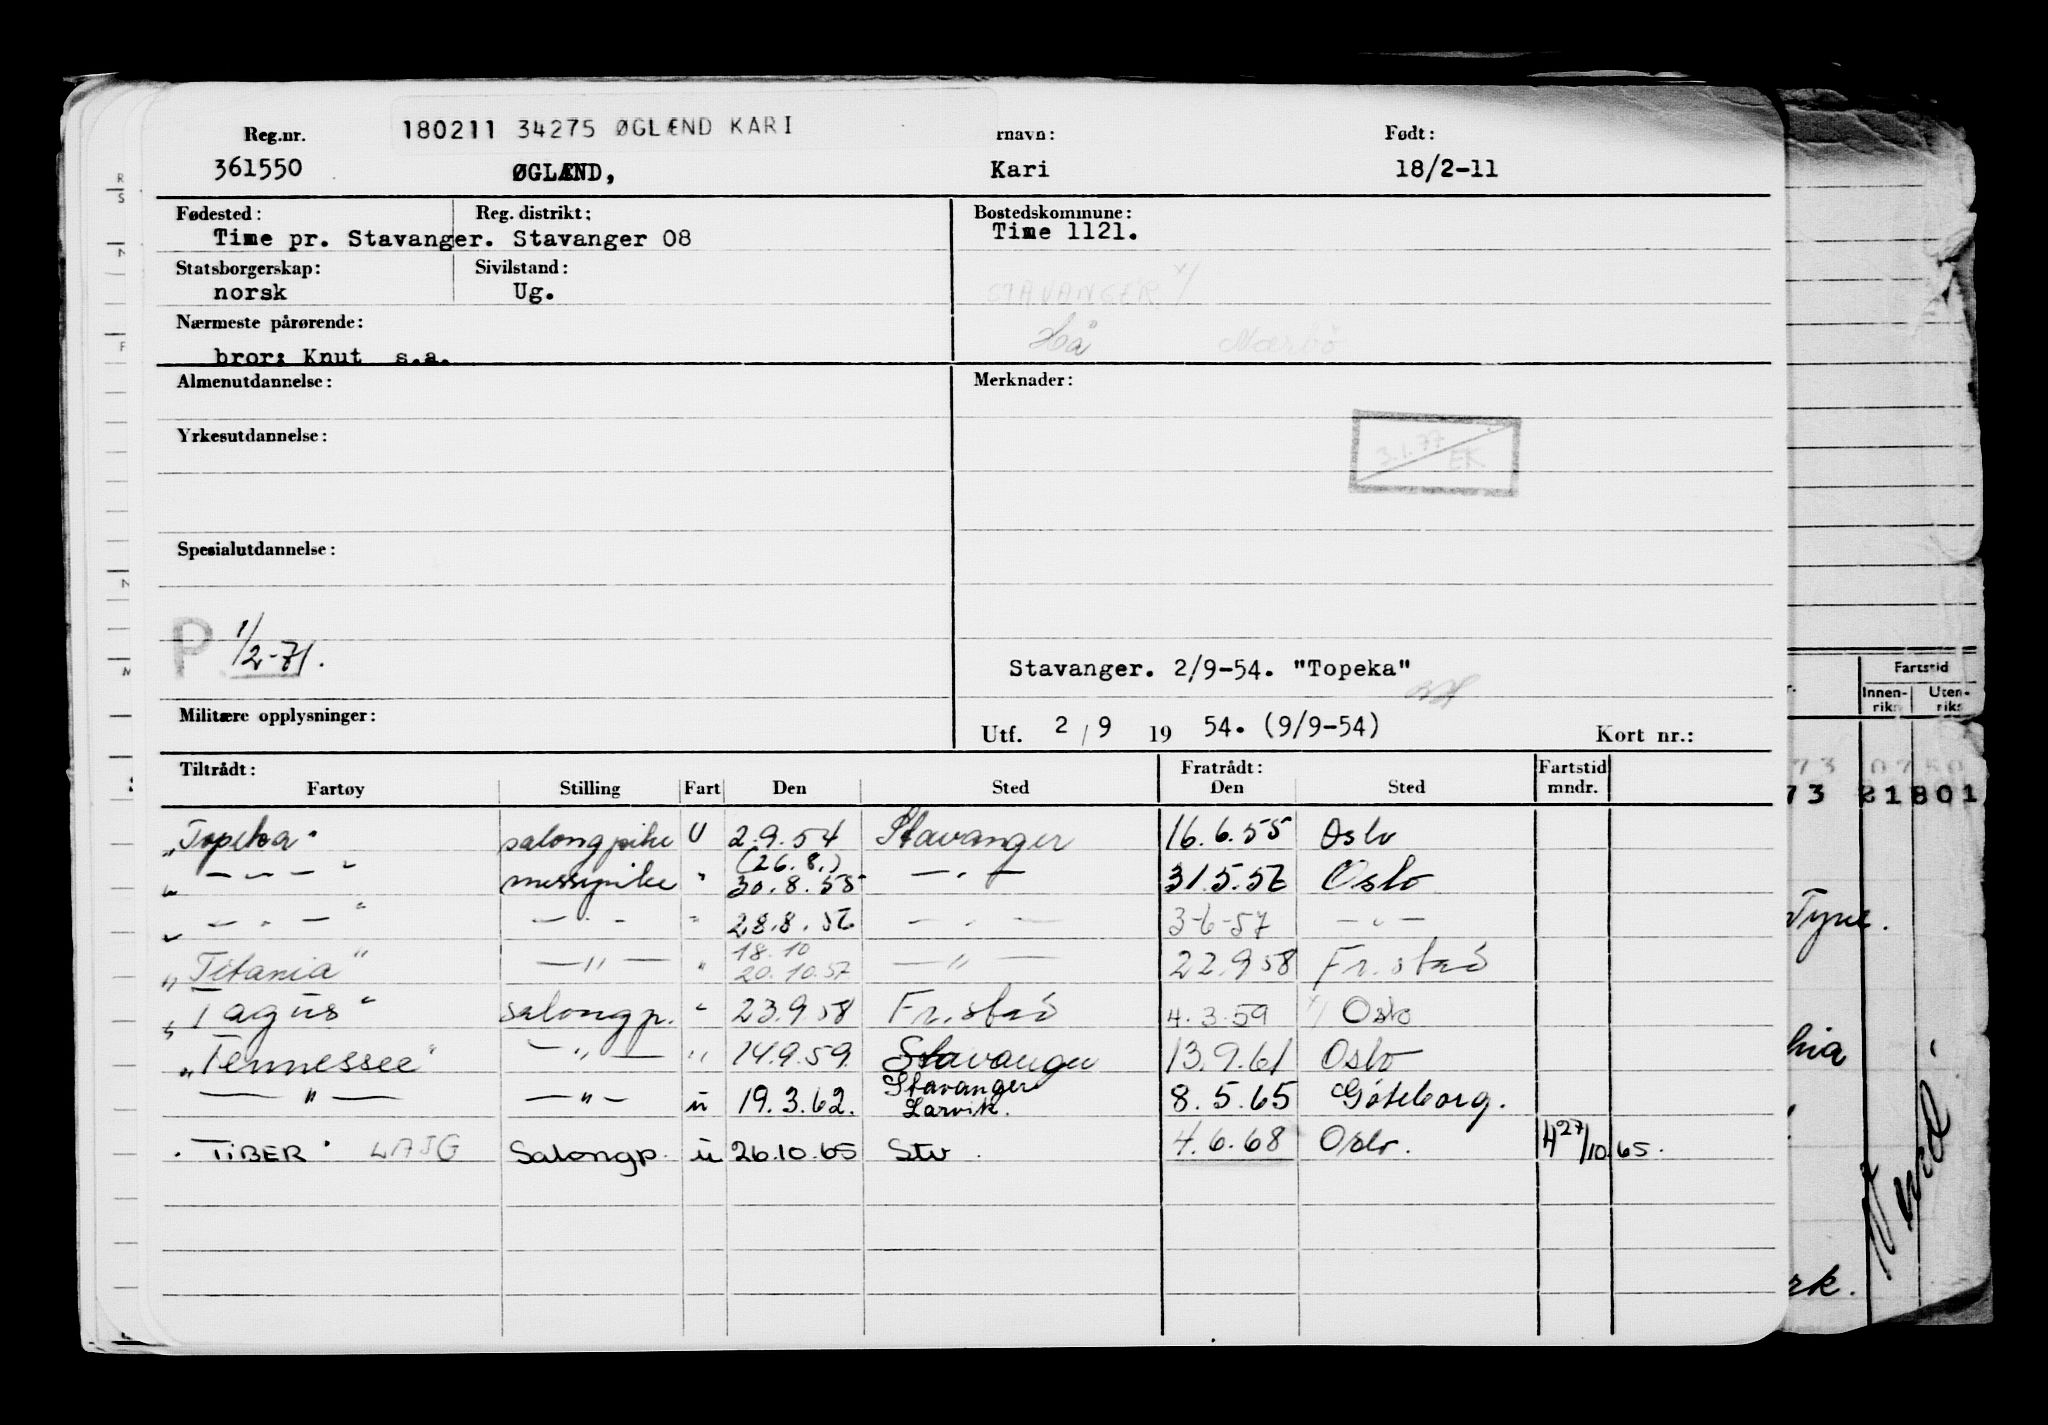 180211 34275 ØGLÆND KARI
Reg.nr. rnavn: Født:
361550 ØGLÆND, Kari 18/2-11
Fødested: Reg. distrikt: Bostedskommune:
Time pr. Stavanger. Stavanger 08 Time 1121.
Statsborgerskap: Sivilstand:
norsk Ug. STAVANGER x/
Nærmeste pårørende:
Hå Nærbö
bror: Knut s.a.
Almenutdannelse: Merknader:
Yrkesutdannelse:
3.1.77 EK
Spesialutdannelse:
P 1/2-71.
Stavanger. 2/9-54. "Topeka"
Militære opplysninger:
Utf. 2/9 1954. (9/9-54) Kort nr.:
Tiltrådt: Fratrådt: Fartstid
Fartøy Stilling Fart Den Sted Den Sted mndr.
"Topeka" salongpike U 2.9.54 Stavanger 16.6.55 Oslo
(26.8.)
" — " — " messepike " 30.8.55 — " — 31.5.56 Oslo
" — " — " — " — " 28.8.56 — " — 3-6-57 — " —
18.10
"Titania" — " — " 20.10.57 — " — 22.9.58 Fr.stad
"Tagus" salongp. " 23.9.58 Fr.stad 4.3.59 x/ Oslo
"Tennessee" — " — " 14.9.59 Stavanger 13.9.61 Oslo
— " — — " — u 19.3.62. Stavanger Larvik. 8.5.65 Göteborg.
"TIBER" LAJG Salongp. u 26.10.65 Stv. 4.6.68 Oslo. 4 27/10.65.
Fartstid
Innen- Uten-
riks riks
73 21801
Tyne.